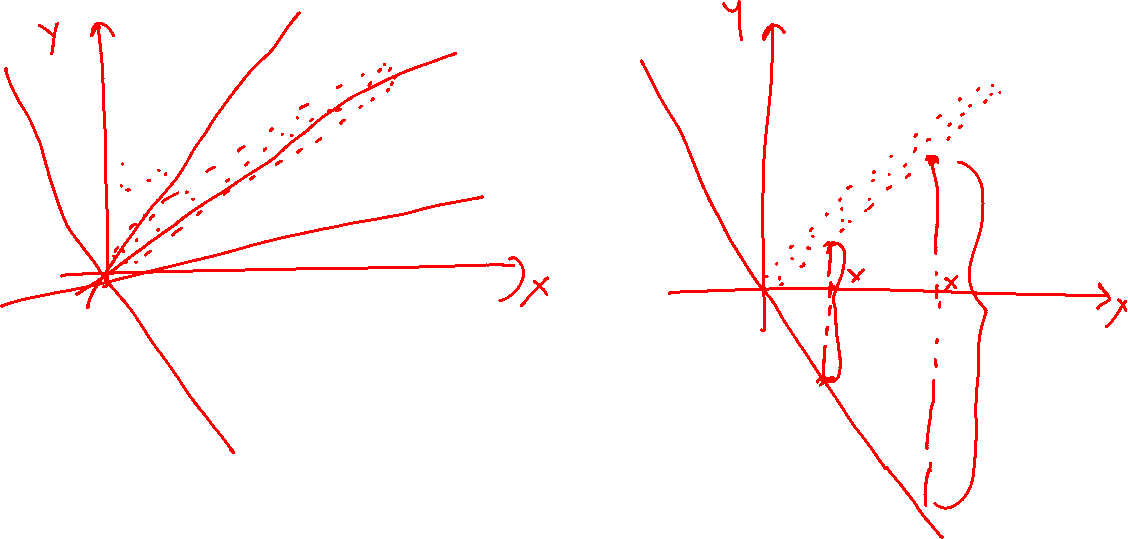 y
x
y
x
x
x